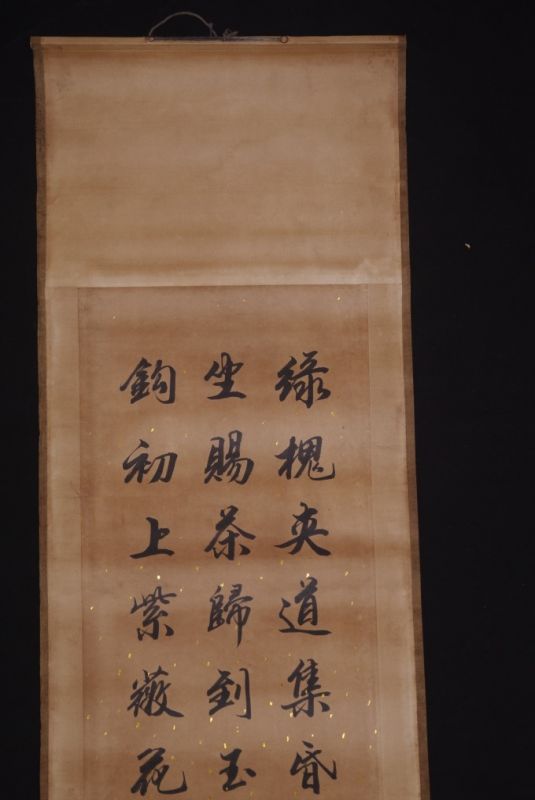 綠槐夾道集昏
坐賜茶歸到玉
鈎初上紫薇花